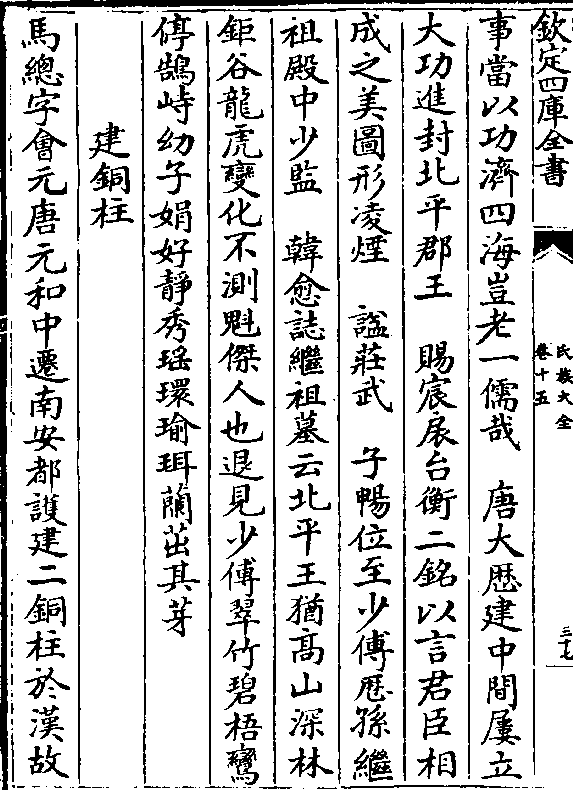 欽定四庫全書
氏族大全
卷十五
三十七
事當以功濟四海豈老一儒哉　唐大歷建中間屢立
大功進封北平郡王　賜宸扆台衡二銘以言君臣相
成之美圖形凌煙　諡莊武　子暢位至少傅歴孫繼
祖殿中少監　韓愈誌繼祖墓云北平王猶髙山深林
鉅谷龍虎變化不測魁傑人也退見少傅翠竹碧梧鸞
停鵠峙幼子娟好靜秀瑶環瑜珥蘭茁其芽
建銅柱
馬總字會元唐元和中遷南安都護建二銅柱於漢故